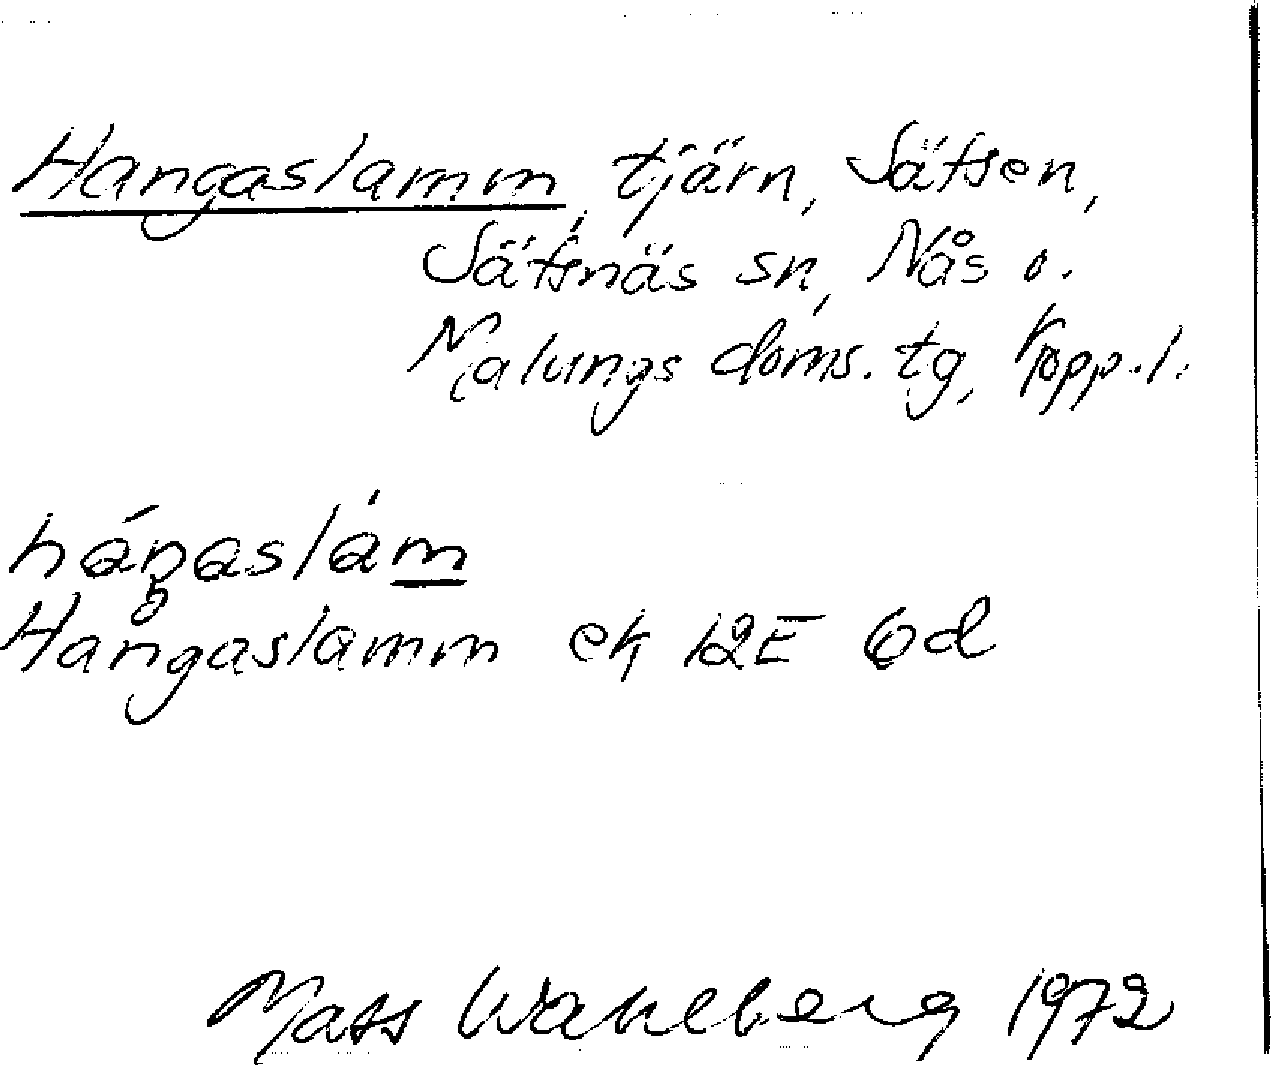 Hangaslamm, tjärn, Sätsen,
Sätsnäs sn, Nås o.
Malungs doms. tg, Kopp. l.
háŋaslàm
Hangaslamm ek 12E 6d
Mats Wahlberg 1972